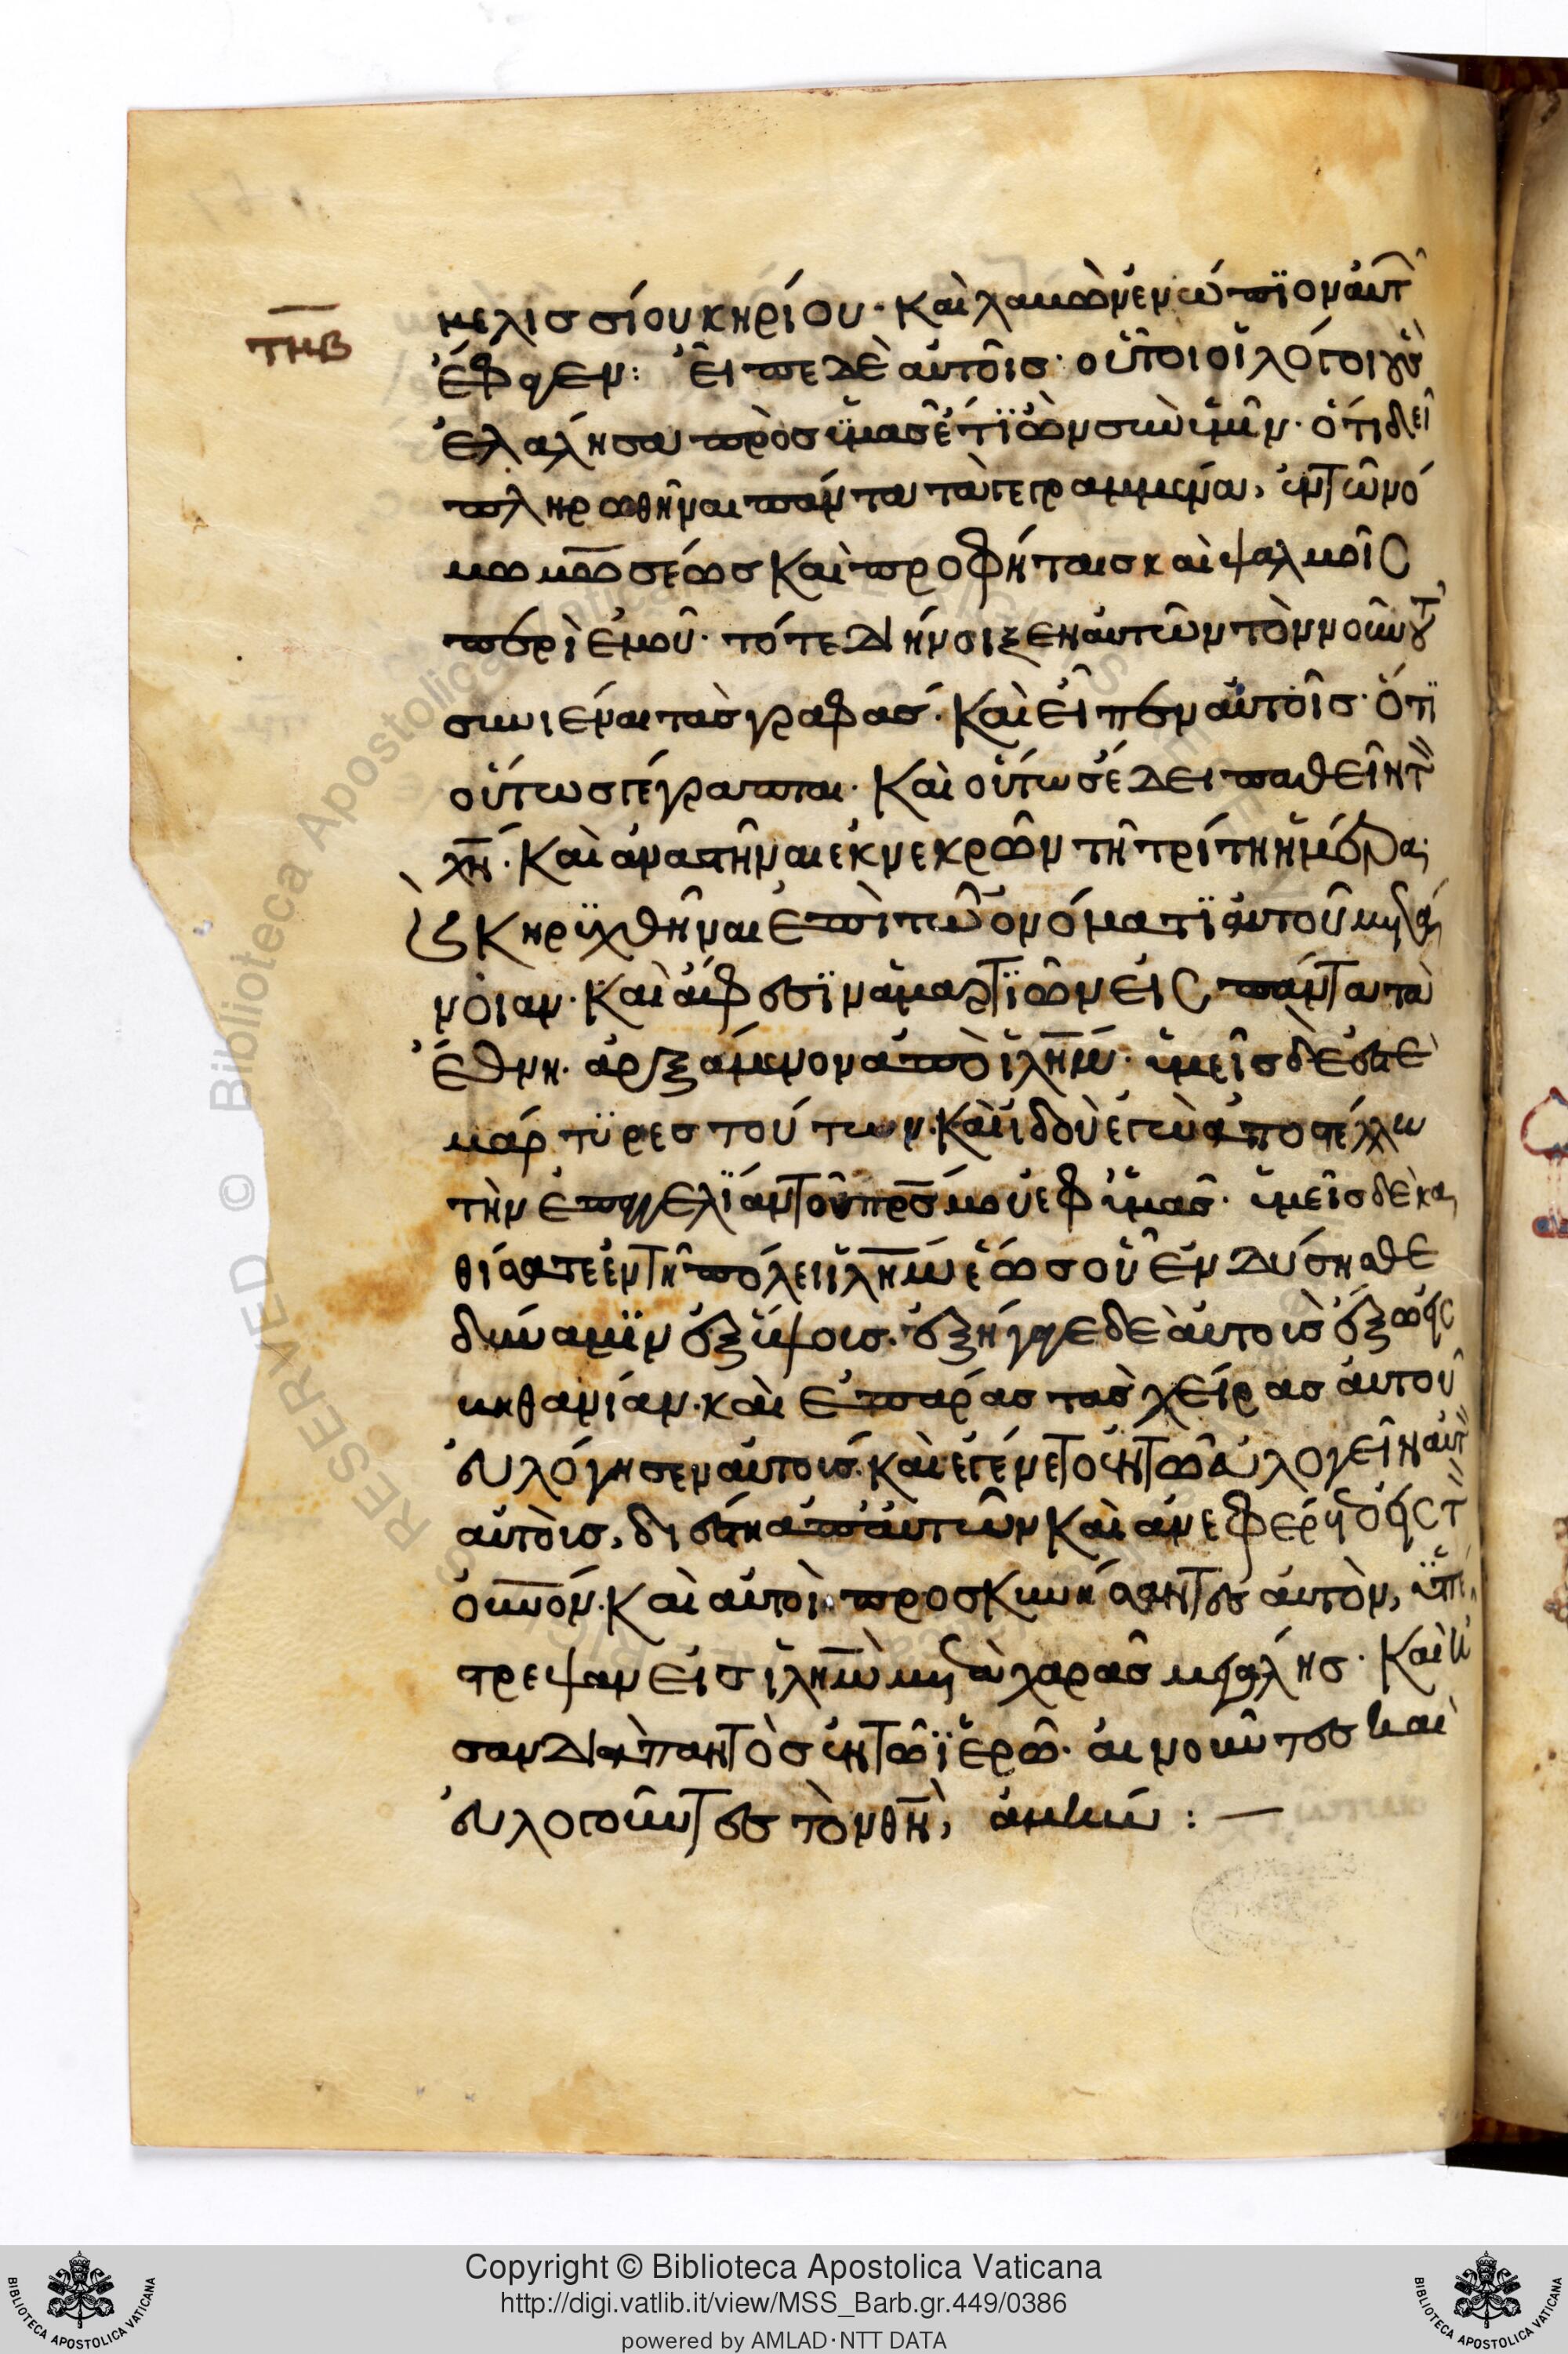 μελισσίου κηρίου· καὶ λαβὼν ἐνώπϊον αὐτ
τμβ
ἔφαγεν: Εἶπε δὲ αὐτοῖς· οὗτοι οἱ λόγοι οὓς
ἐλάλησα πρὸς ϋμᾶς ἔτϊ ὢν σὺν ὑμῖν· ὅτι δεῖ
πληρωθῆναι πάντα τὰ γεγραμμένα, ἐν τῶ νό
μω μωσέως καὶ προφήταις καὶ ψαλμοῖς
περὶ ἐμοῦ· τότε διήνοιξεν αὐτῶν τὸν νοῦν τοῦ
συνιέναι τὰς γραφάς· καὶ εἶπεν αὐτοῖς· ὅτϊ
οὕτως γέγραπται· καὶ οὕτως ἔδει παθεῖν τ
χν· καὶ ἀναστῆναι ἐκ νεκρῶν τῆ τρίτη ἡμέρα·
καὶ κηρϋχθῆναι ἐπὶ τῶ ὀνόματϊ αὐτοῦ μετά
νοιαν· καὶ ἄφεσϊν ἁμαρτϊῶν εἰς πάντα τὰ
ἔθνη· ἀρξάμενον ἀπὸ ἱλημ· ὑμεῖς δέ ἐστε
μάρτϋρες τούτων· καὶ ἰδοὺ ἐγὼ ἀποστέλλω
τὴν ἐπαγγελϊαν τοῦ πρς μου ἐφ ὑμᾶς· ὑμεῖς δὲ κα
θίσατε ἐν τῆ πόλει ἱλημ ἕως οὗ ἐνδύσησθε
δύναμϊν ἐξ ὕψους· ἐξήγαγε δὲ αὐτοὺς ἔξω εἰς
βηθανίαν· καὶ ἐπάρας τὰς χεῖρας αὐτοῦ
εὐλόγησεν αὐτούς· καὶ ἐγένετο ἐν τῶ εὐλογεῖν αὐτ
αὐτοὺς, διέστη ἀπ αὐτῶν καὶ ἀνεφέρετο εἰς τ
οὐνόν· καὶ αὐτοὶ προσκυνήσαντες αὐτὸν, ὑπέ
στρεψαν εἰς ἱλημ μετὰ χαρᾶς μεγάλης· καὶ ἦ
σαν διαπαντὸς ἐν τῶ ϊερῶ· αἰνοῦντες καὶ
εὐλογοῦντες τὸν θν, ἀμήν: —
Copyright © Biblioteca Apostolica Vaticana
http://digi.vatlib.it/view/MSS_Barb.gr.449/0386
powered by AMLAD·NTT DATA
BIBLIOTECA APOSTOLICA VATICANA
BIBLIOTECA APOSTOLICA VATICANA